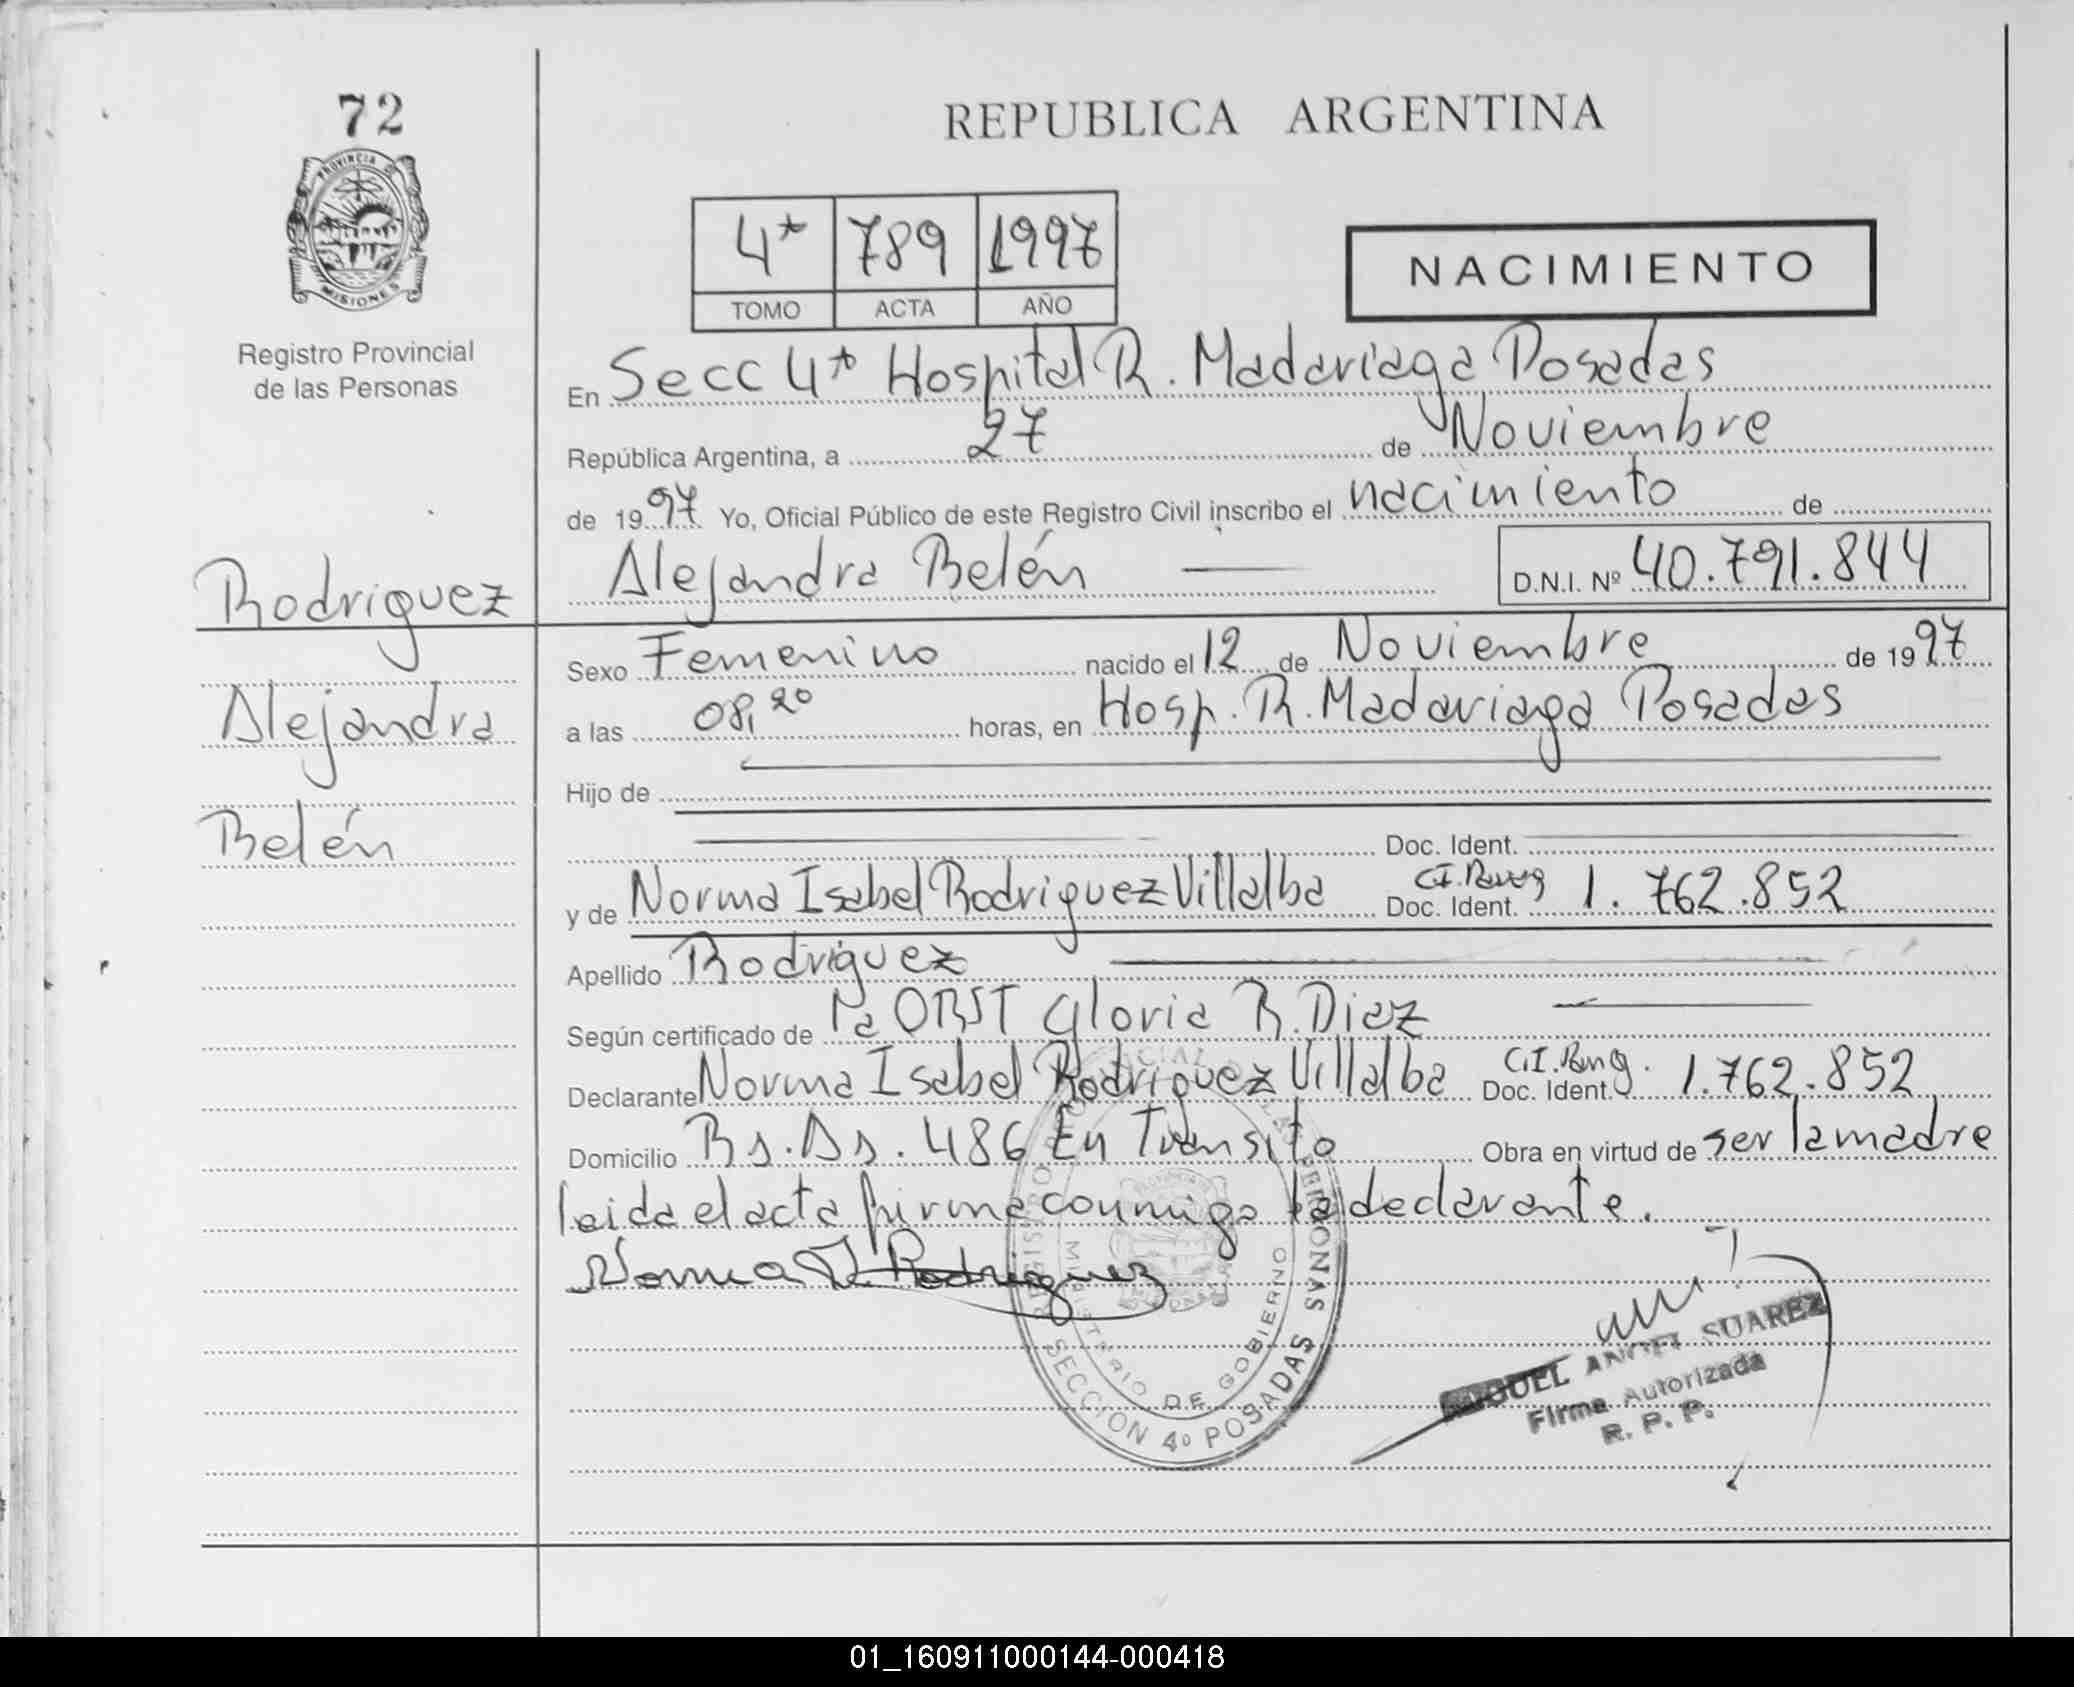 72
PROVINCIA DE
MISIONES
Registro Provincial
de las Personas
Rodriguez
Alejandra
Belén
REPUBLICA ARGENTINA
4* 789 1997
TOMO ACTA AÑO
NACIMIENTO
En Secc 4* Hospital R. Madariaga Posadas
República Argentina, a 27 de Noviembre
de 1997 Yo, Oficial Público de este Registro Civil inscribo el nacimiento de
Alejandra Belén D.N.I. Nº 40.791.844
Sexo Femenino nacido el 12 de Noviembre de 1997
a las 08,20 horas, en Hosp. R. Madariaga Posadas
Hijo de
Doc. Ident.
y de Norma Isabel Rodriguez Villalba Doc. Ident. C.I. 1.762.852
Apellido Rodriguez
Según certificado de la OBST Gloria R. Diaz
Declarante Norma Isabel Rodriguez Villalba Doc. Ident. C.I. 1.762.852
Domicilio Bs. As. 486 En Transito Obra en virtud de ser la madre
leida el acta firma conmigo la declarante.
Norma I. Rodriguez
MINISTERIO DE GOBIERNO
SECCION 4º POSADAS
MIGUEL ANGEL SUAREZ
Firma Autorizada
R. P. P.
01_160911000144-000418